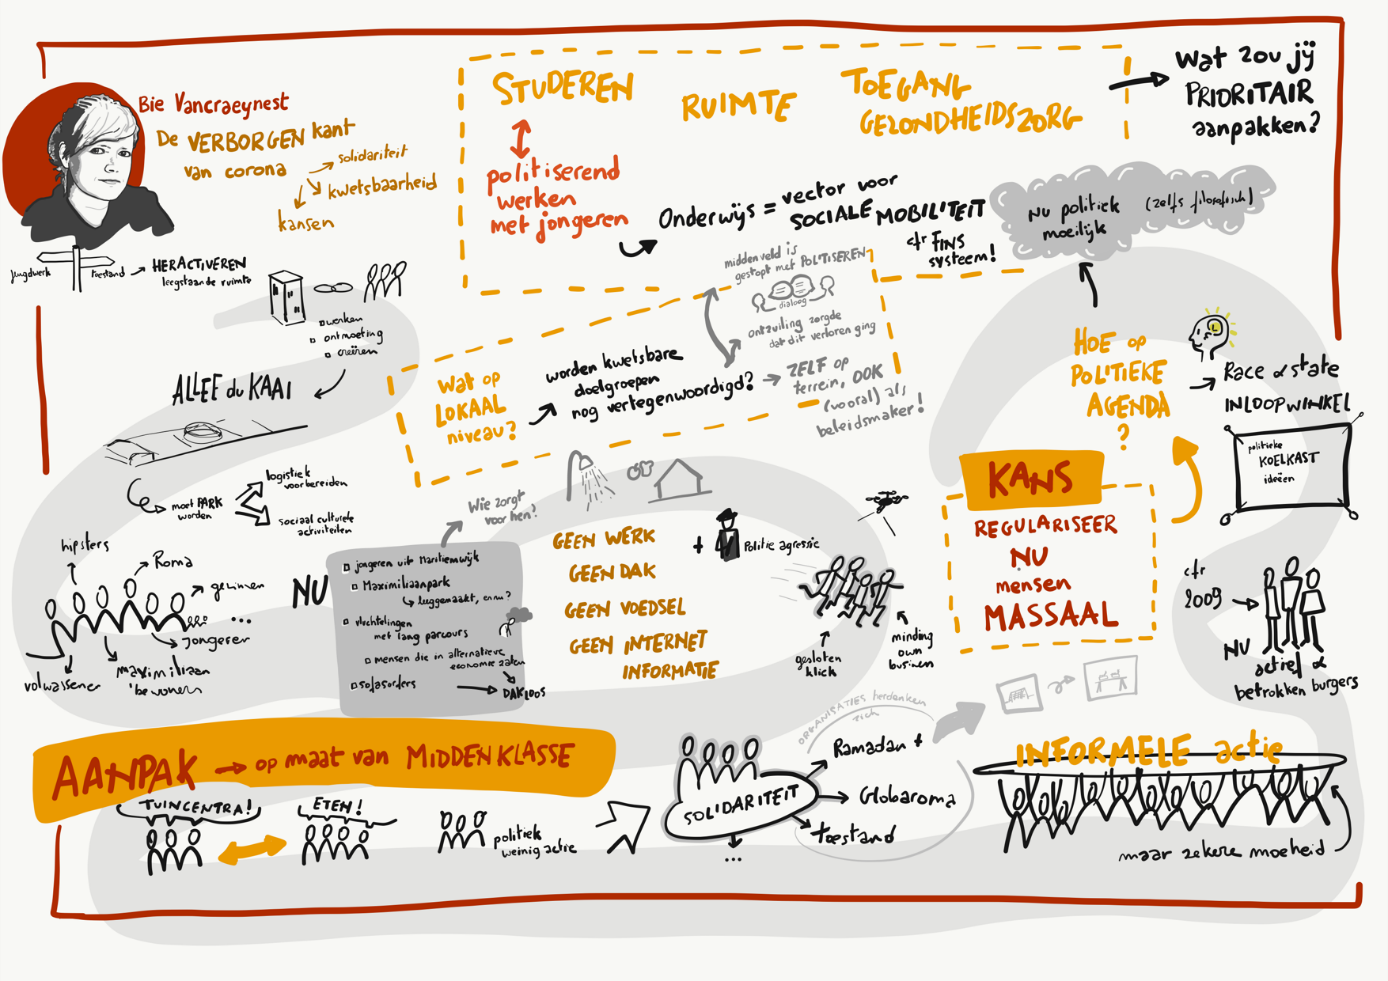 Bie Vancraeynest
De VERBORGEN kant
van corona
solidariteit
kwetsbaarheid
kansen
Jeugdwerk
toestand
HERACTIVEREN
leegstaande ruimte
werken
ontmoeting
creëren
ALLEE du KAAI
moet PARK
worden
logistiek
voorbereiden
sociaal culturele
activiteiten
hipsters
Roma
gezinnen
...
jongeren
maximiliaan
bewoners
volwassenen
NU
jongeren uit Maritiemwijk
Maximiliaanpark
leeggemaakt, en nu?
vluchtelingen
met lang parcours
mensen die in alternatieve
economie zaten
sofasorders
DAKLOOS
Wie zorgt
voor hen?
STUDEREN
RUIMTE
TOEGANG
GEZONDHEIDSZORG
Wat zou jij
PRIORITAIR
aanpakken?
politiserend
werken
met jongeren
Onderwijs = vector voor
SOCIALE MOBILITEIT
cfr FINS
systeem!
NU politiek
moeilijk
(zelfs filosofisch)
Wat op
LOKAAL
niveau?
worden kwetsbare
doelgroepen
nog vertegenwoordigd?
middenveld is
gestopt met POLITISEREN
dialoog
ontzuiling zorgde
dat dit verloren ging
ZELF op
terrein, OOK
(vooral) als
beleidsmaker!
HOE op
POLITIEKE
AGENDA
?
Race & state
INLOOPWINKEL
politieke
KOELKAST
ideeën
GEEN WERK
GEEN DAK
GEEN VOEDSEL
GEEN INTERNET
INFORMATIE
+ Politie agressie
gesloten
blick
minding
own
business
KANS
REGULARISEER
NU
mensen
MASSAAL
cfr
2009
NU
actief &
betrokken burgers
AANPAK → op maat van MIDDENKLASSE
TUINCENTRA!
ETEN!
politiek
weinig actie
SOLIDARITEIT
...
ORGANISATIES herdenken
zich
Ramadan +
Globaroma
toestand
INFORMELE actie
maar zekere moeheid